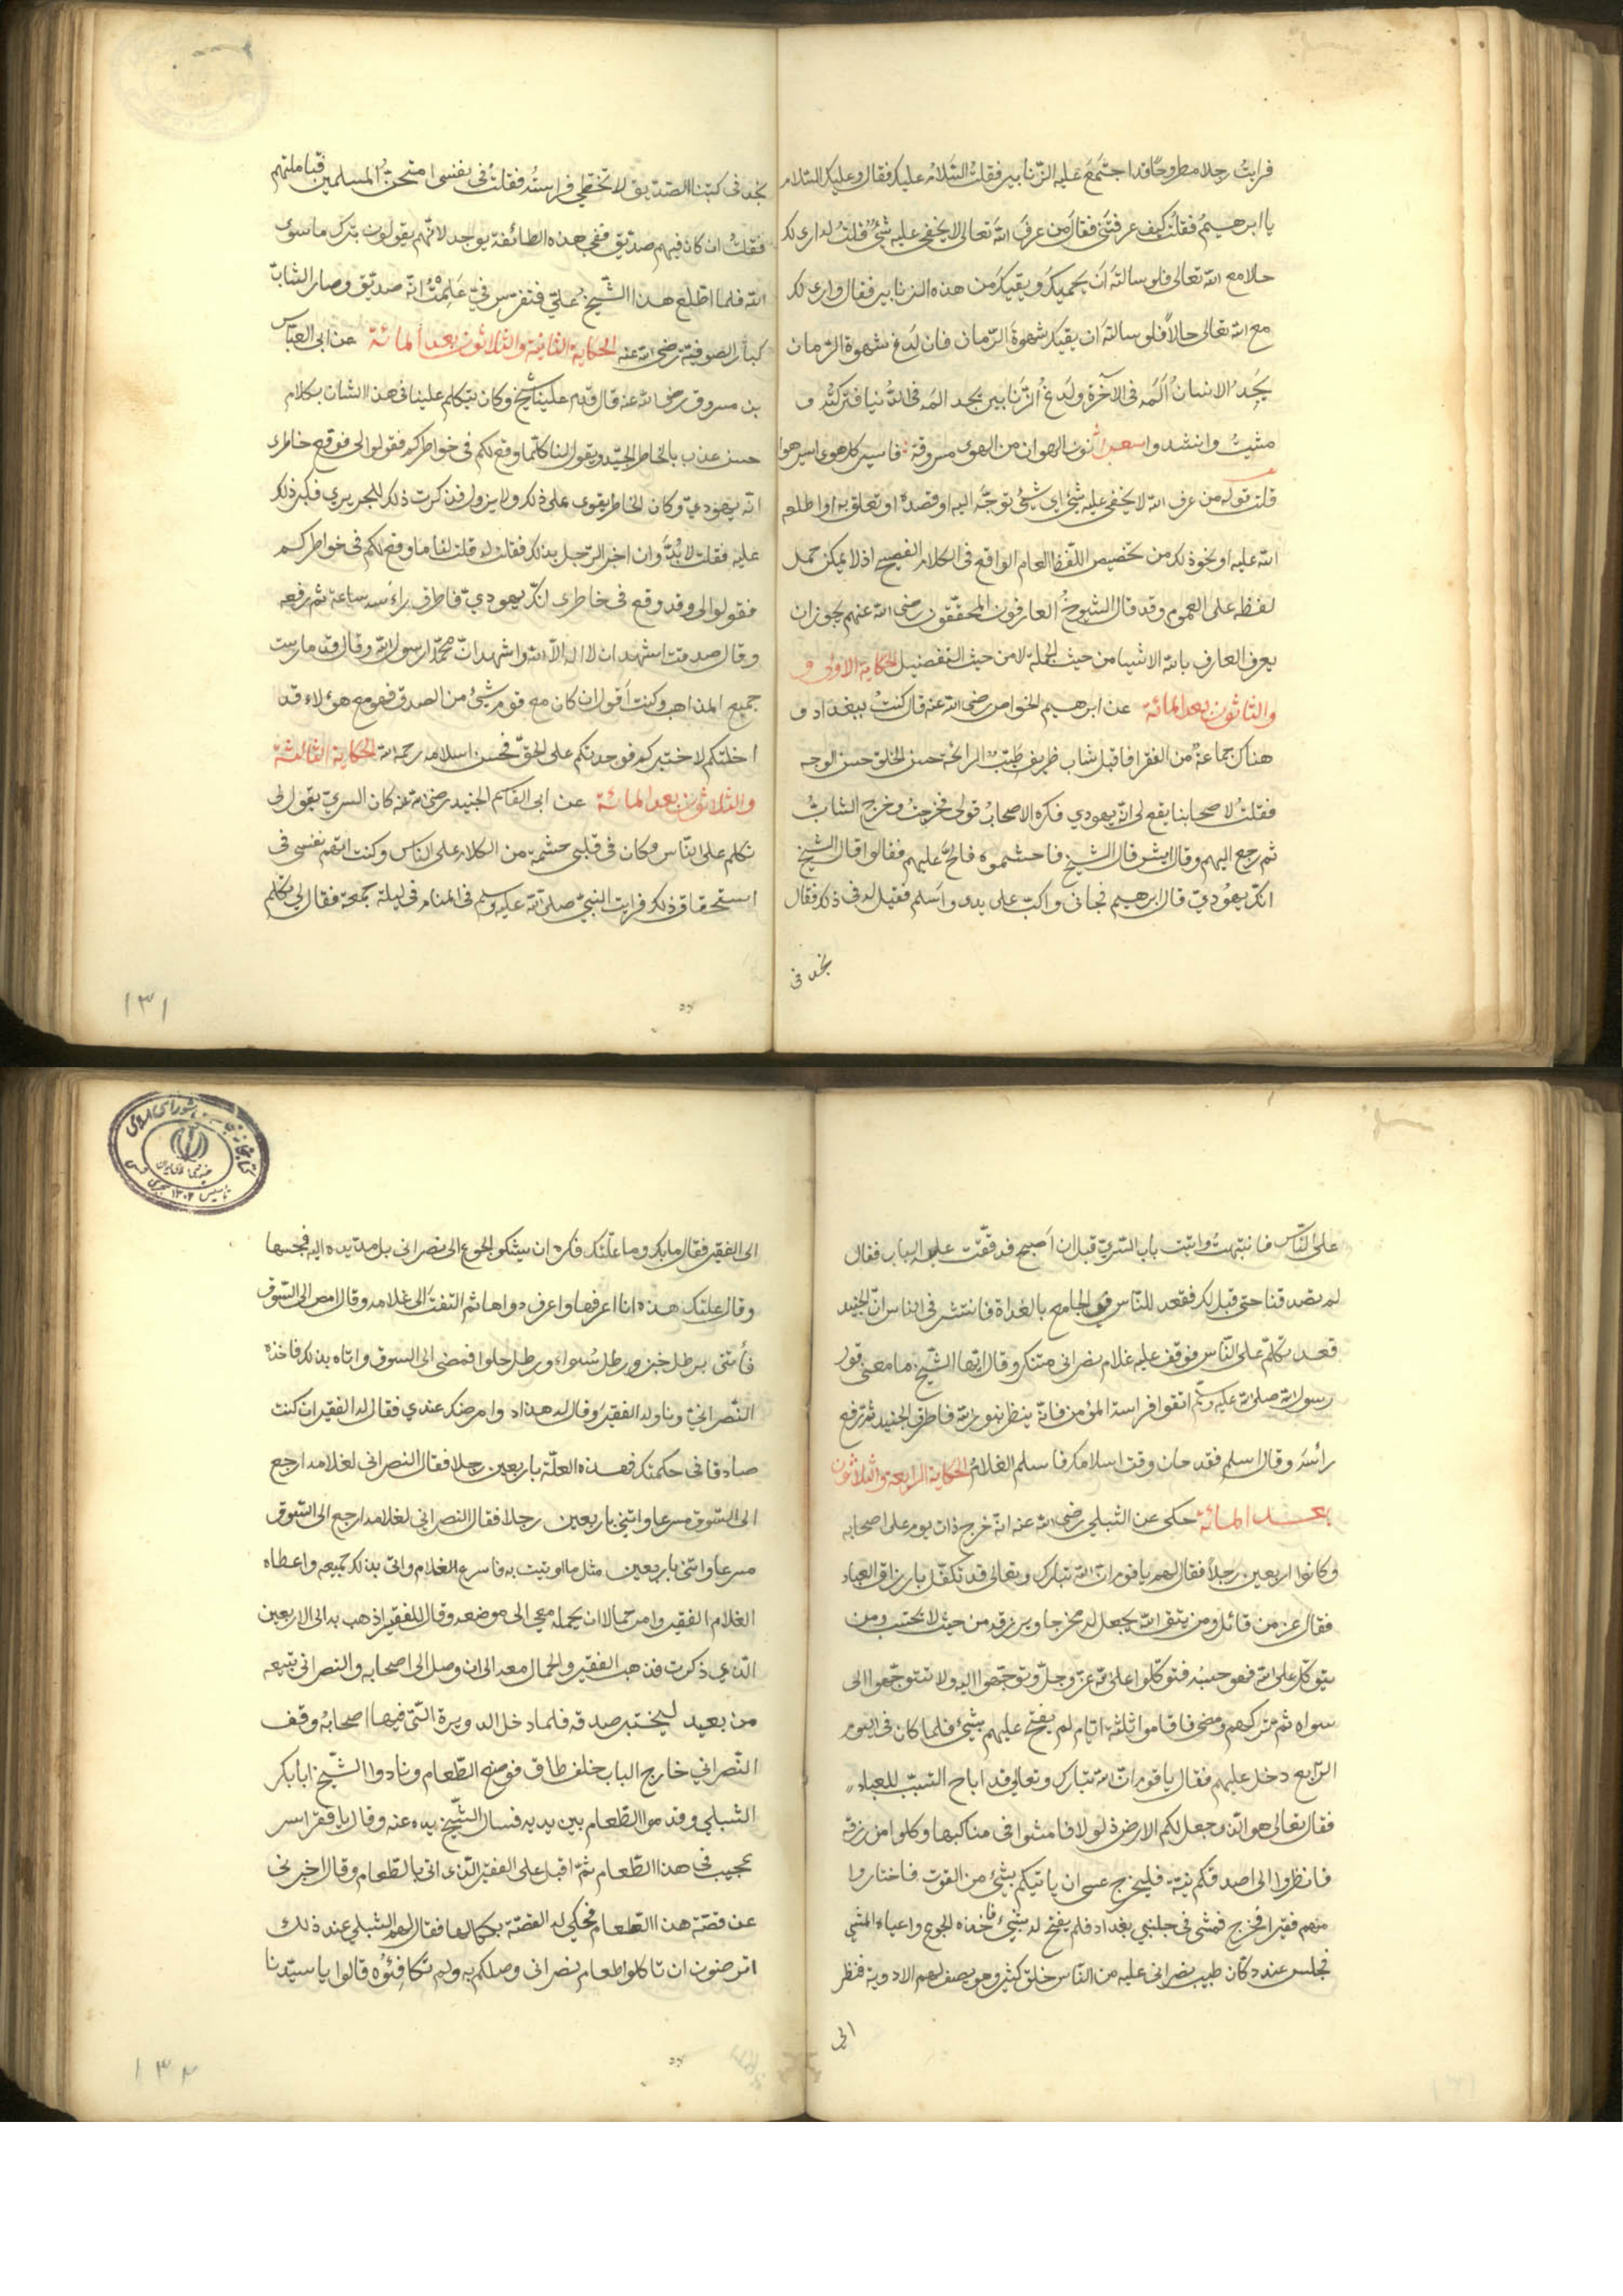 فرايتُ رجلا مطروحًا قد اجتمَعَ عليه الزّنابير فقلتُ السّلامُ عليك فقال وعليك السّلام
يا ابرهيمُ فقلتُ كيف عرفتَنى فقال من عرفَ اللهَ تعالى لا يخفى عليه شئٌ قلتُ له ارى لك
حالا مع الله تعالى فلو سالتَهُ اَن يحميكَ ويقيكَ من هذه الزنابير فقال وارى لك
مع الله تعالى حالاً فلو سالتهَ ان يقيك شهوةَ الرّمان فان لدغ شهوة الرمان
يَجِدُ الانسانُ اَلَمَه فى الآخرة ولَدغُ الزّنابير يجد المَه فى الدُّنيا فتركتُه و
مشيتُ وانشدوا شعرا نون الهوان من الهوى مسروقة فاسير كل هوى اسير هوا
قلت قوله من عرف الله لا يخفى عليه شئ اى شئ توجّه اليه او قصده او تعلق به او اطلعه
الله عليه او نحو ذلك من تخصيص اللّفظ العام الواقع فى الكلام الفصيح اذ لا يمكن حمل
لفظه على العموم وقد قال الشيوخُ العارفون المحقّقون رضى الله عنهم يجوز ان
يعرف العارف بالله الاشيا من حيث الجملة لا من حيث التفضيل الحكاية الاولى و
والثلثون بعد المائة عن ابرهيم الخواص رضى الله عنه قال كنتُ ببغداد و
هناك جماعةٌ من الفقرا فاقبل شاب ظريف طَيّب الرائحة حسن الخلق حسن الوجه
فقلتُ لاصحابنا يقع لى انّه يهودي فكره الاصحابُ قولى فخرجتُ وخرج الشابُ
ثم رجع اليهم وقال ايش قال الشيخ فاحتشموه فالحّ عليهم فقالوا قال الشيخ
انك يهُوديّ قال ابرهيم فجانى واكبّ على يدى واَسلم فقيل له فى ذلك فقال
نجد فى
نجد فى كتبنا الصّدّيق لا تخطي فراستُه فقلتُ فى نفسى امتحنُ المسلمين فتاملتهم
فقلتُ ان كان فيهم صدّيق ففى هذه الطائفة يوجد لانّهم يقولون بترك ما سوى
الله فلما اطّلع هذا الشّيخُ علىّ فتفرّس فيّ عَلِمْتُ انّه صدّيق وصار الشابّ
كبار الصوفية رضى الله عنه الحكاية الثانية والثلاثون بعد المائة عن ابى العبّاس
بن مسروق رضى الله عنه قال قدم علينا شيخ وكان يتكلم علينا فى هذا الشان بكلام
حسن عذب بالخاطر الجيّد ويقول لنا كلّما وقع لكم فى خواطركم فقولوا لى فوقع خاطرى
انّه يهوديّ وكان الخاطر يقوى على ذلك ولا يزول فذكرت ذلك للجريرى فكبر ذلك
عليه فقلت لا بُدّ وان اخبر الرّجل بذلك فقلت له قلت لنا ما وقع لكم فى خواطركم
فقولوا لى وقد وقع فى خاطرى انّك يهودي فاطرق راسه ساعة ثم رفعه
وقال صدقت اشهد ان لا اله الّا الله واشهد انّ محمّدا رسول الله وقال قد مارست
جميع المذاهب وكنت اَقول ان كان مع قوم شئٌ من الصدق فهو مع هؤلاء قد
اخلتكم لاختبركم فوجدتكم على الحقّ فحسن اسلامه رحمه الله الحكاية الثالثة
والثلاثون بعد المائة عن ابى القاسم الجنيد رضى الله عنه كان السريّ يقول لى
تكلم على الناس وكان فى قلبى حشمة من الكلام على الناس وكنت اتّهم نفسى فى
استحقاق ذلك فرايت النبيّ صلى الله عليه وسلم فى المنام فى ليلة جمعة فقال لى تكلم
١٣١
على النّاس فانتبهتُ واتيت باب السّريّ قبل ان اَصبح فدققت عليه الباب فقال
لم تصدقنا حتى قيل لك فقعد للنّاس فى الجامع بالغداة فانتشر فى الناس انّ الجنيد
قعد تكلّم على النّاس فوقف عليه غلام نصرانى متنكر وقال ايّها الشّيخ ما معنى قول
رسول الله صلى الله عليه وسلم اتقوا فراسة المؤمن فانّه ينظر بنور الله فاطرق الجنيد ثم رفع
رأسَهُ وقال اسلم فقد حان وقت اسلامك فاسلم الغلامُ الحكاية الرابعة والثلاثون
بعد المائة حكى عن الشبلي رضى الله عنه انّه خرج ذات يوم على اصحابه
وكانوا اربعين رجلاً فقال لهم يا قوم انّ الله تبارك وتعالى قد تكفّل بارزاق العباد
فقال عزّ من قائل ومن يتق الله يجعل له مخرجا ويرزقه من حيث لا يحتسب ومن
يتوكّل على الله فهو حسبُه فتوكّلوا على الله عزّ وجلّ وتوجّهوا اليه ولا تتوجّهوا الى
سواه ثم تركهم ومضى فاقاموا ثلثة ايّام لم يفتح عليهم بشئٍ فلما كان فى اليوم
الرّابع دخل عليهم فقال يا قوم انّ الله تبارك وتعالى قد اباح التسبّب للعباد
فقال تعالى هو الّذى جعل لكم الارض ذلولا فامشوا فى مناكبها وكلوا من رزقه
فانظروا الى اصدقكم نيّة فليخرج عسى ان ياتيكم بشئ من القوت فاختاروا
منهم فقيرا فخرج فمشى فى جانبي بغداد فلم يفتح له بشئ فاخذه الجوع واعياه المشى
فجلس عند دكّان طبيب نصرانى عليه من النّاس خلق كثير وهو يصف لهم الادوية فنظر
الى
الى الفقير فقال ما بك وما علّتك فكره ان يشكو الجوع الى نصرانى بل مدّ يده اليه فجسها
وقال علتك هذه انا اعرفها واعرف دواها ثم التفتَ الى غلامه وقال امض الى السّوق
فأتنى برطل خبز ورطل شواء ورطل حلوا فمضى الى السوق واتاه بذلك فاخذه
النّصرانيّ وناوله الفقير وقال له هذا دوا مرضك عندي فقال له الفقير ان كنت
صادقا فى حكمتك فهذه العلّة باربعين رجلا فقال النصرانى لغلامه ارجع
الى السّوق مسرعا واتنى باربعين رجلا فقال النصرانى لغلامه ارجع الى السّوق
مسرعا واتنى باربعين مثل ما اوتيت به فاسرع الغلام واتى بذلك جميعه واعطاه
الغلام الفقير وامر حمالا ان يحمله معى الى موضعه وقال للفقير اذهب به الى الاربعين
الّذي ذكرت فذهب الفقير والحمال معه الى ان وصل الى اصحابه والنصرانى يتبعه
من بعيد ليختبر صدقه فلما دخل الدويرة التّى فيها اصحابهُ وقف
النّصرانى خارج الباب خلف طاق فوضع الطّعام ونادوا الشّيخ ابا بكر
الشبلى وقدموا الطّعام بين يديه فسال الشّيخ يده عنه وقال يا فقرا سر
عجيب فى هذا الطّعام ثمّ اقبل على الفقير الّذى اتى بالطّعام وقال اخبرنى
عن قصّة هذا الطّعام فحكى له القصّة بكمالها فقال لهم الشبلي عند ذلك
اترضون ان تاكلوا طعام نصرانى وصلكم به ولم تكافئوُه قالوا يا سيّدنا
١٣٢